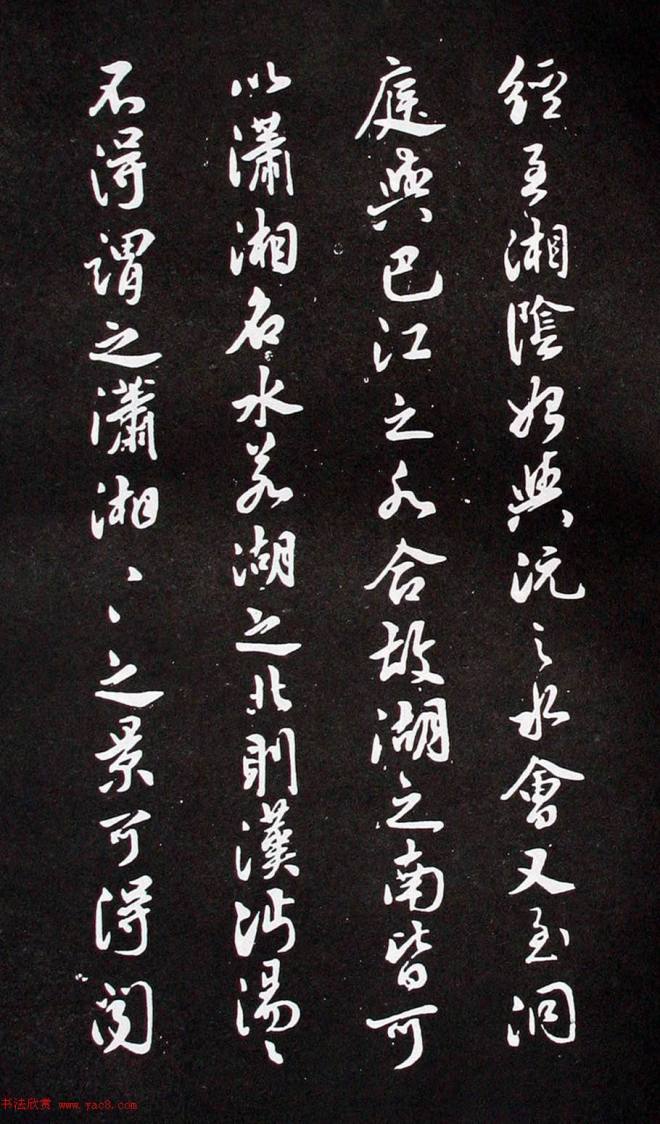 經至湘陰始與沅之水會又至洞
庭與巴江之水合故湖之南皆可
以瀟湘名水若湖之北則漢沔湯々
不得謂之瀟湘々々之景可得聞
书法欣赏 www.yac8.com